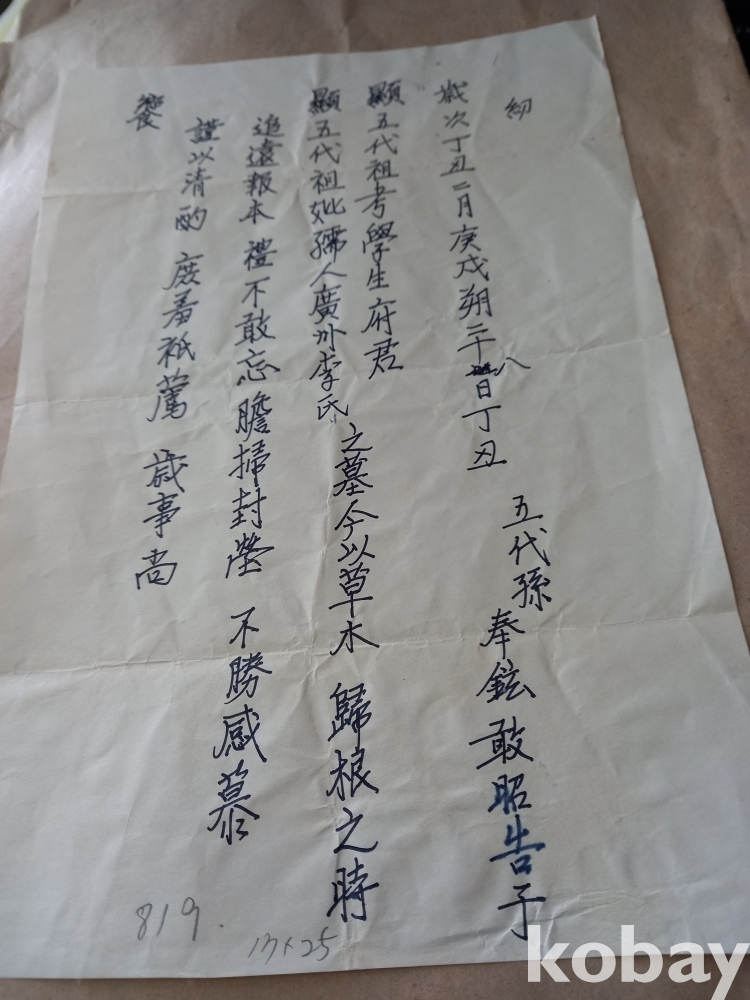 幼
歲次丁丑二月庚戌朔二十八日丁丑 五代孫 奉鉉 敢昭告于
顯五代祖考學生府君
顯五代祖妣孺人廣州李氏 之墓今以草木 歸根之時
追遠報本 禮不敢忘 瞻掃封瑩 不勝感慕
謹以清酌 庶羞祇薦 歲事尚
饗
819.
17×25
kobay